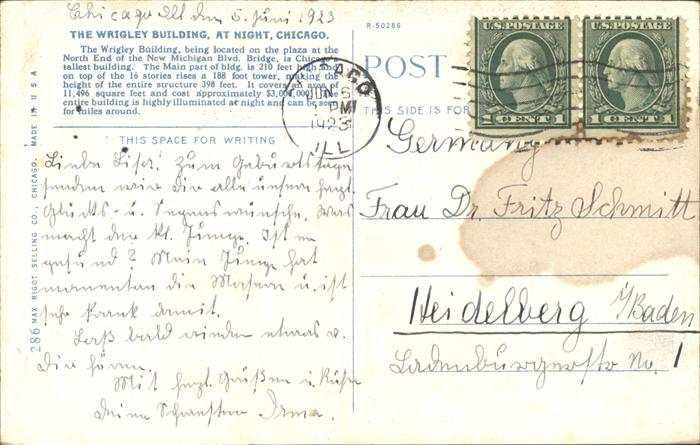 Chicago Ill den 5. Juni 1923
THE WRIGLEY BUILDING, AT NIGHT, CHICAGO.
The Wrigley Building, being located on the plaza at the
North End of the New Michigan Blvd. Bridge, is Chicago's
tallest building. The Main part of bldg. is 210 feet high and
on top of the 16 stories rises a 188 foot tower, making the
height of the entire structure 398 feet. It covers an area of
11,496 square feet and cost approximately $3,000,000. The
entire building is highly illuminated at night and can be seen
for miles around.
THIS SPACE FOR WRITING
Liebe Liesel! Zum Geburtstage
senden wir Dir alle unsere herzl.
Glücks- u. Segenswünsche. Was
macht der kl. Junge. Ist er
gesund? Mein Junge hat
momentan die Masern u. ist
sehr krank damit.
Lass bald wieder etwas v.
Dir hören.
Mit herzl. Grüßen u. Küssen
Deine Schwester Irma.
286 MAX RIGOT SELLING CO., CHICAGO. MADE IN U S A
R-50286
POST
THIS SIDE IS FOR
CAGO
JUN 5
PM
1923
ILL
U.S. POSTAGE
1 CENT 1
U.S. POSTAGE
1 CENT 1
Germany
Frau Dr. Fritz Schmitt
Heidelberg i/Baden
Ladenburgerstr No. 1